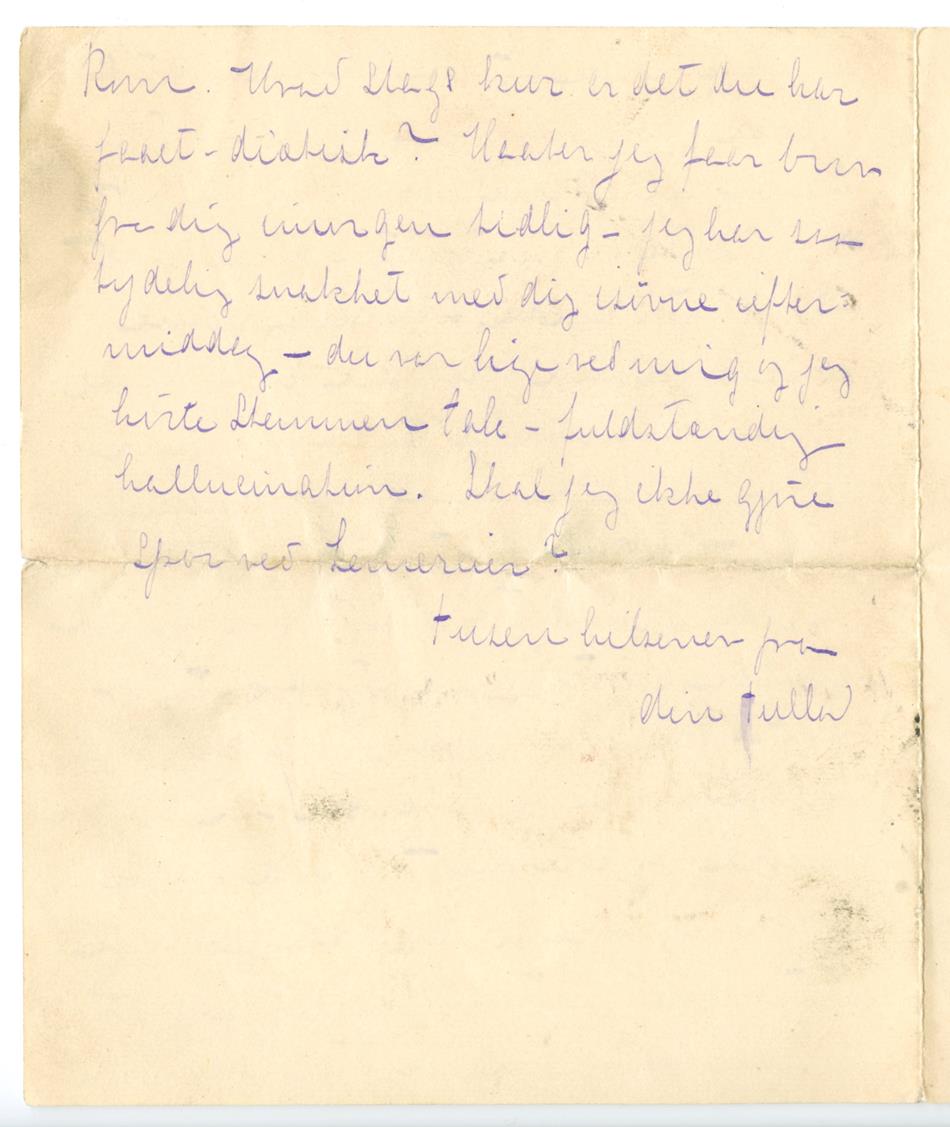 Rom. Hvad Slags kur er det du har
faaet - diætisk? Haaber jeg faar brev
fra dig imorgen tidlig - jeg har saa
tydelig snakket med dig isövne iefter-
middag - du var lige ved mig og jeg
hörte Stemmen tale - fuldstændig
hallucination. Skal jeg ikke gjöre
Spor ved Lemerier?
tusen hilsener fra
din tulla